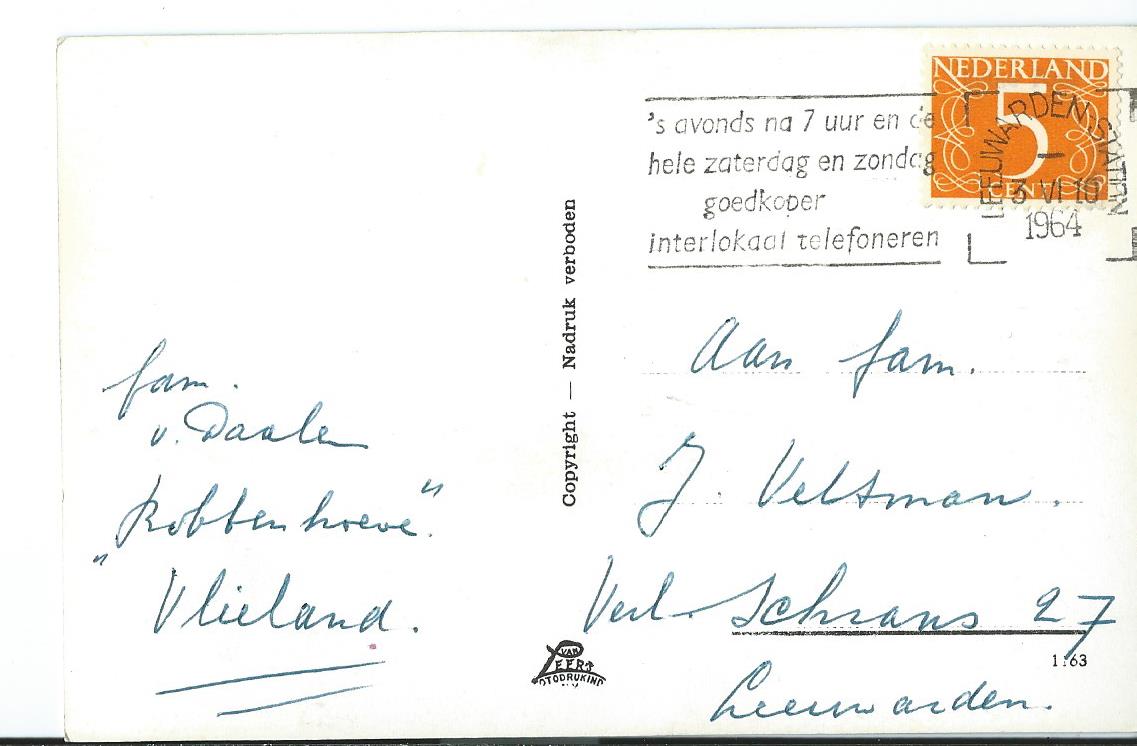 NEDERLAND
5
CENT
LEEUWARDEN STATION
3 VI 10
1964
's avonds na 7 uur en de
hele zaterdag en zondag
goedkoper
interlokaal telefoneren
Copyright — Nadruk verboden
fam.
v. Daalen
„Robbenhoeve".
Vlieland.
Aan fam.
J. Veltman.
Verl. Schrans 27
Leeuwarden.
VAN
LEER'S
FOTODRUKIND
N.V.
1163